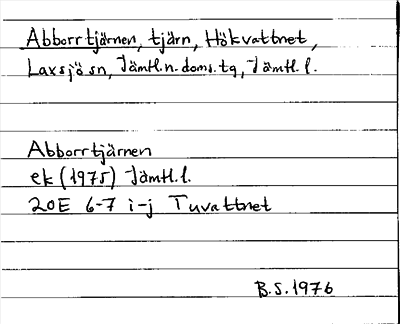 Abborrtjärnen, tjärn, Hökvattnet,
Laxsjö sn, Jämtl.n.doms.tg, Jämtl.l.
Abborrtjärnen
ek (1975) Jämtl.l.
20E 6-7 i-j Tuvattnet
B.S.1976